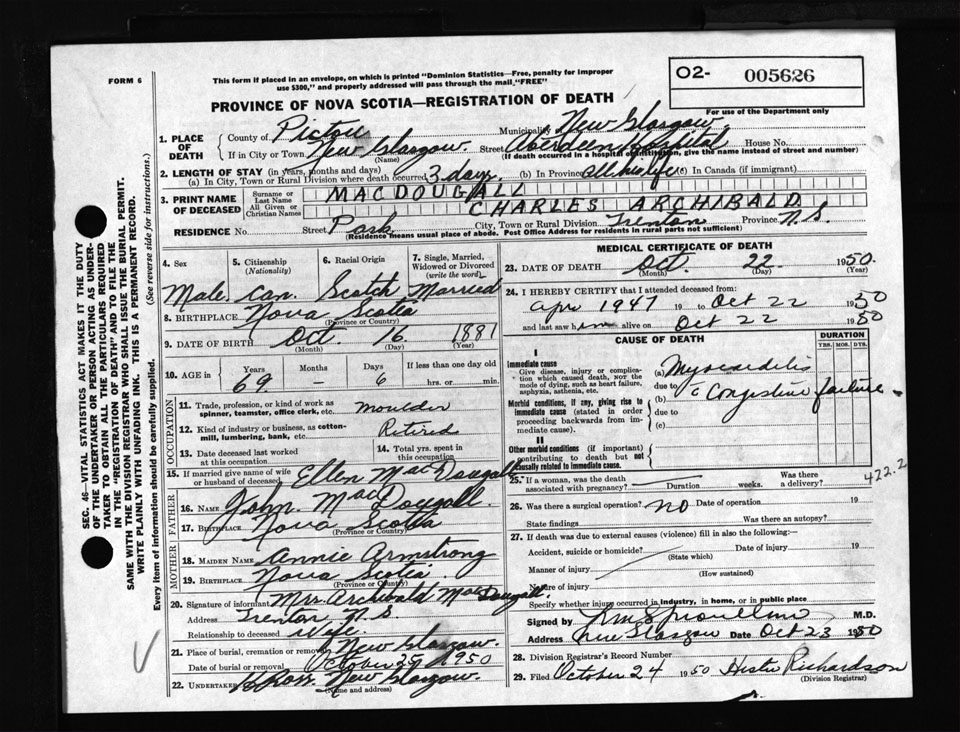 FORM 6
This form if placed in an envelope, on which is printed "Dominion Statistics—Free, penalty for improper
use $300," and properly addressed will pass through the mail "FREE"
O2- 005626
For use of the Department only
PROVINCE OF NOVA SCOTIA—REGISTRATION OF DEATH
SEC. 46—VITAL STATISTICS ACT MAKES IT THE DUTY
OF THE UNDERTAKER OR PERSON ACTING AS UNDER-
TAKER TO OBTAIN ALL THE PARTICULARS REQUIRED
IN THE "REGISTRATION OF DEATH" AND TO FILE THE
SAME WITH THE DIVISION REGISTRAR WHO SHALL ISSUE THE BURIAL PERMIT.
WRITE PLAINLY WITH UNFADING INK. THIS IS A PERMANENT RECORD.
Every item of information should be carefully supplied. (See reverse side for instructions.)
1. PLACE OF DEATH
County of Pictou Municipality New Glasgow
If in City or Town New Glasgow. Street Aberdeen Hospital House No.
(Name) (If death occurred in a hospital or institution, give the name instead of street and number)
2. LENGTH OF STAY (in years, months and days)
(a) In City, Town or Rural Division where death occurred 3 days. (b) In Province all his life (c) In Canada (if immigrant)
3. PRINT NAME OF DECEASED
Surname or Last Name MACDOUGALL
All Given or Christian Names CHARLES ARCHIBALD
RESIDENCE No. Street Park City, Town or Rural Division Trenton Province N.S.
(Residence means usual place of abode. Post Office Address for residents in rural parts not sufficient)
4. Sex
Male.
5. Citizenship (Nationality)
Can.
6. Racial Origin
Scotch
7. Single, Married, Widowed or Divorced (write the word)
Married
8. BIRTHPLACE Nova Scotia
(Province or Country)
9. DATE OF BIRTH Oct. 16 1881
(Month) (Day) (Year)
10. AGE in Years Months Days If less than one day old
69 - 6 hrs. or min.
OCCUPATION
11. Trade, profession, or kind of work as spinner, teamster, office clerk, etc. Moulder
12. Kind of industry or business, as cotton-mill, lumbering, bank, etc. Retired
13. Date deceased last worked at this occupation
14. Total yrs. spent in this occupation
15. If married give name of wife or husband of deceased Ellen MacDougall
FATHER
16. Name John. MacDougall.
17. Birthplace Nova Scotia
(Province or Country)
MOTHER
18. MAIDEN NAME Annie Armstrong
19. Birthplace Nova Scotia
(Province or Country)
20. Signature of informant Mrs. Archibald MacDougall.
Address Trenton N.S.
Relationship to deceased Wife.
21. Place of burial, cremation or removal New Glasgow.
Date of burial or removal October 24 1950
22. Undertaker Ross. New Glasgow.
(Name and address)
MEDICAL CERTIFICATE OF DEATH
23. DATE OF DEATH Oct. 22 1950.
(Month) (Day) (Year)
24. I HEREBY CERTIFY that I attended deceased from:
Apr 1947 19 to Oct 22 1950
and last saw him alive on Oct 22 1950
CAUSE OF DEATH
DURATION
YRS. MOS. DYS.
I
Immediate cause
Give disease, injury or complica-
tion which caused death, NOT the
mode of dying, such as heart failure,
asphyxia, asthenia, etc.
(a) Myocarditis
due to
Morbid conditions, if any, giving rise to
immediate cause (stated in order
proceeding backwards from im-
mediate cause).
(b) c Congestive failure.
due to
(c)
II
Other morbid conditions (if important)
contributing to death but not
causally related to immediate cause.
422.2
25. If a woman, was the death associated with pregnancy? Duration weeks. Was there a delivery?
26. Was there a surgical operation? no Date of operation 19
State findings Was there an autopsy?
27. If death was due to external causes (violence) fill in also the following:
Accident, suicide or homicide? Date of injury 19
(State which)
Manner of injury
(How sustained)
Nature of injury
Specify whether injury occurred in industry, in home, or in public place
Signed by M.D.
Address New Glasgow Date Oct 23 1950
28. Division Registrar's Record Number
29. Filed October 24 1950 Hester Richardson
(Division Registrar)